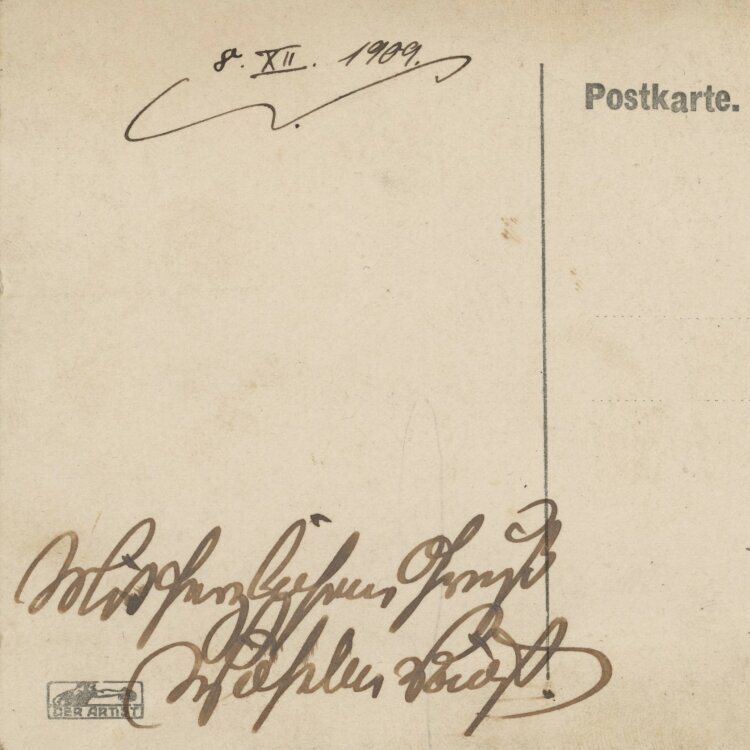 8. XII. 1909.
Postkarte.
Mit herzlichem Gruß
Wilhelm Voigt
DER ARTIST